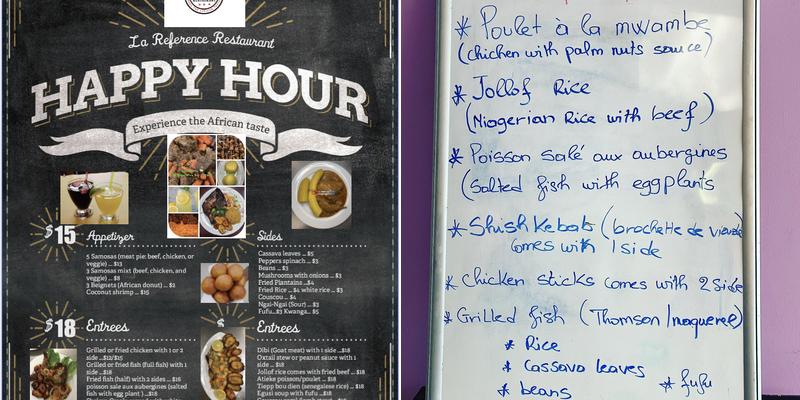 La Reference Restaurant
HAPPY HOUR
Experience the African taste
$15 Appetizer
5 Samosas (meat pie: beef, chicken, or
veggie) ... $13
3 Samosas mixt (beef, chicken, and
veggie) ... $8
3 Beignets (African donut) ... $2
Coconut shrimp ... $15
Sides
Cassava leaves ... $5
Peppers spinach ... $3
Beans ... $3
Mushrooms with onions ... $3
Fried Plantains ..$4
Fried Rice .. $4 white rice ... $3
Couscou .. $4
Ngai-Ngai (Sour) ... $3
Fufu..$3 Kwanga.. $5
$18 Entrees
Grilled or fried chicken with 1 or 2
side ...$12/$15
Grilled or fried fish (full fish) with 1
side ... $18
Fried fish (half) with 2 sides ... $16
poisson sale aux aubergines (salted
fish with egg plant ) ...$18
Entrees
Dibi (Goat meat) with 1 side ..$18
Oxtail stew or peanut sauce with 1
side ... $18
Jollof rice comes with fried beef ... $18
Atieke poisson/poulet ... $18
Tiepp bou dien (senegalese rice) ... $18
Egusi soup with fufu ... $18
* Poulet à la mwambe
(chicken with palm nuts sauce)
* Jollof Rice
(Niogerian Rice with beef)
* Poisson salé aux aubergines
(Salted fish with eggplants
* Shish Kebab (brochette de viande
comes with 1 side
* Chicken sticks comes with 2 side
* Grilled fish (Thomson/maquereel)
* Rice
* Cassava leaves
* beans
* fufu